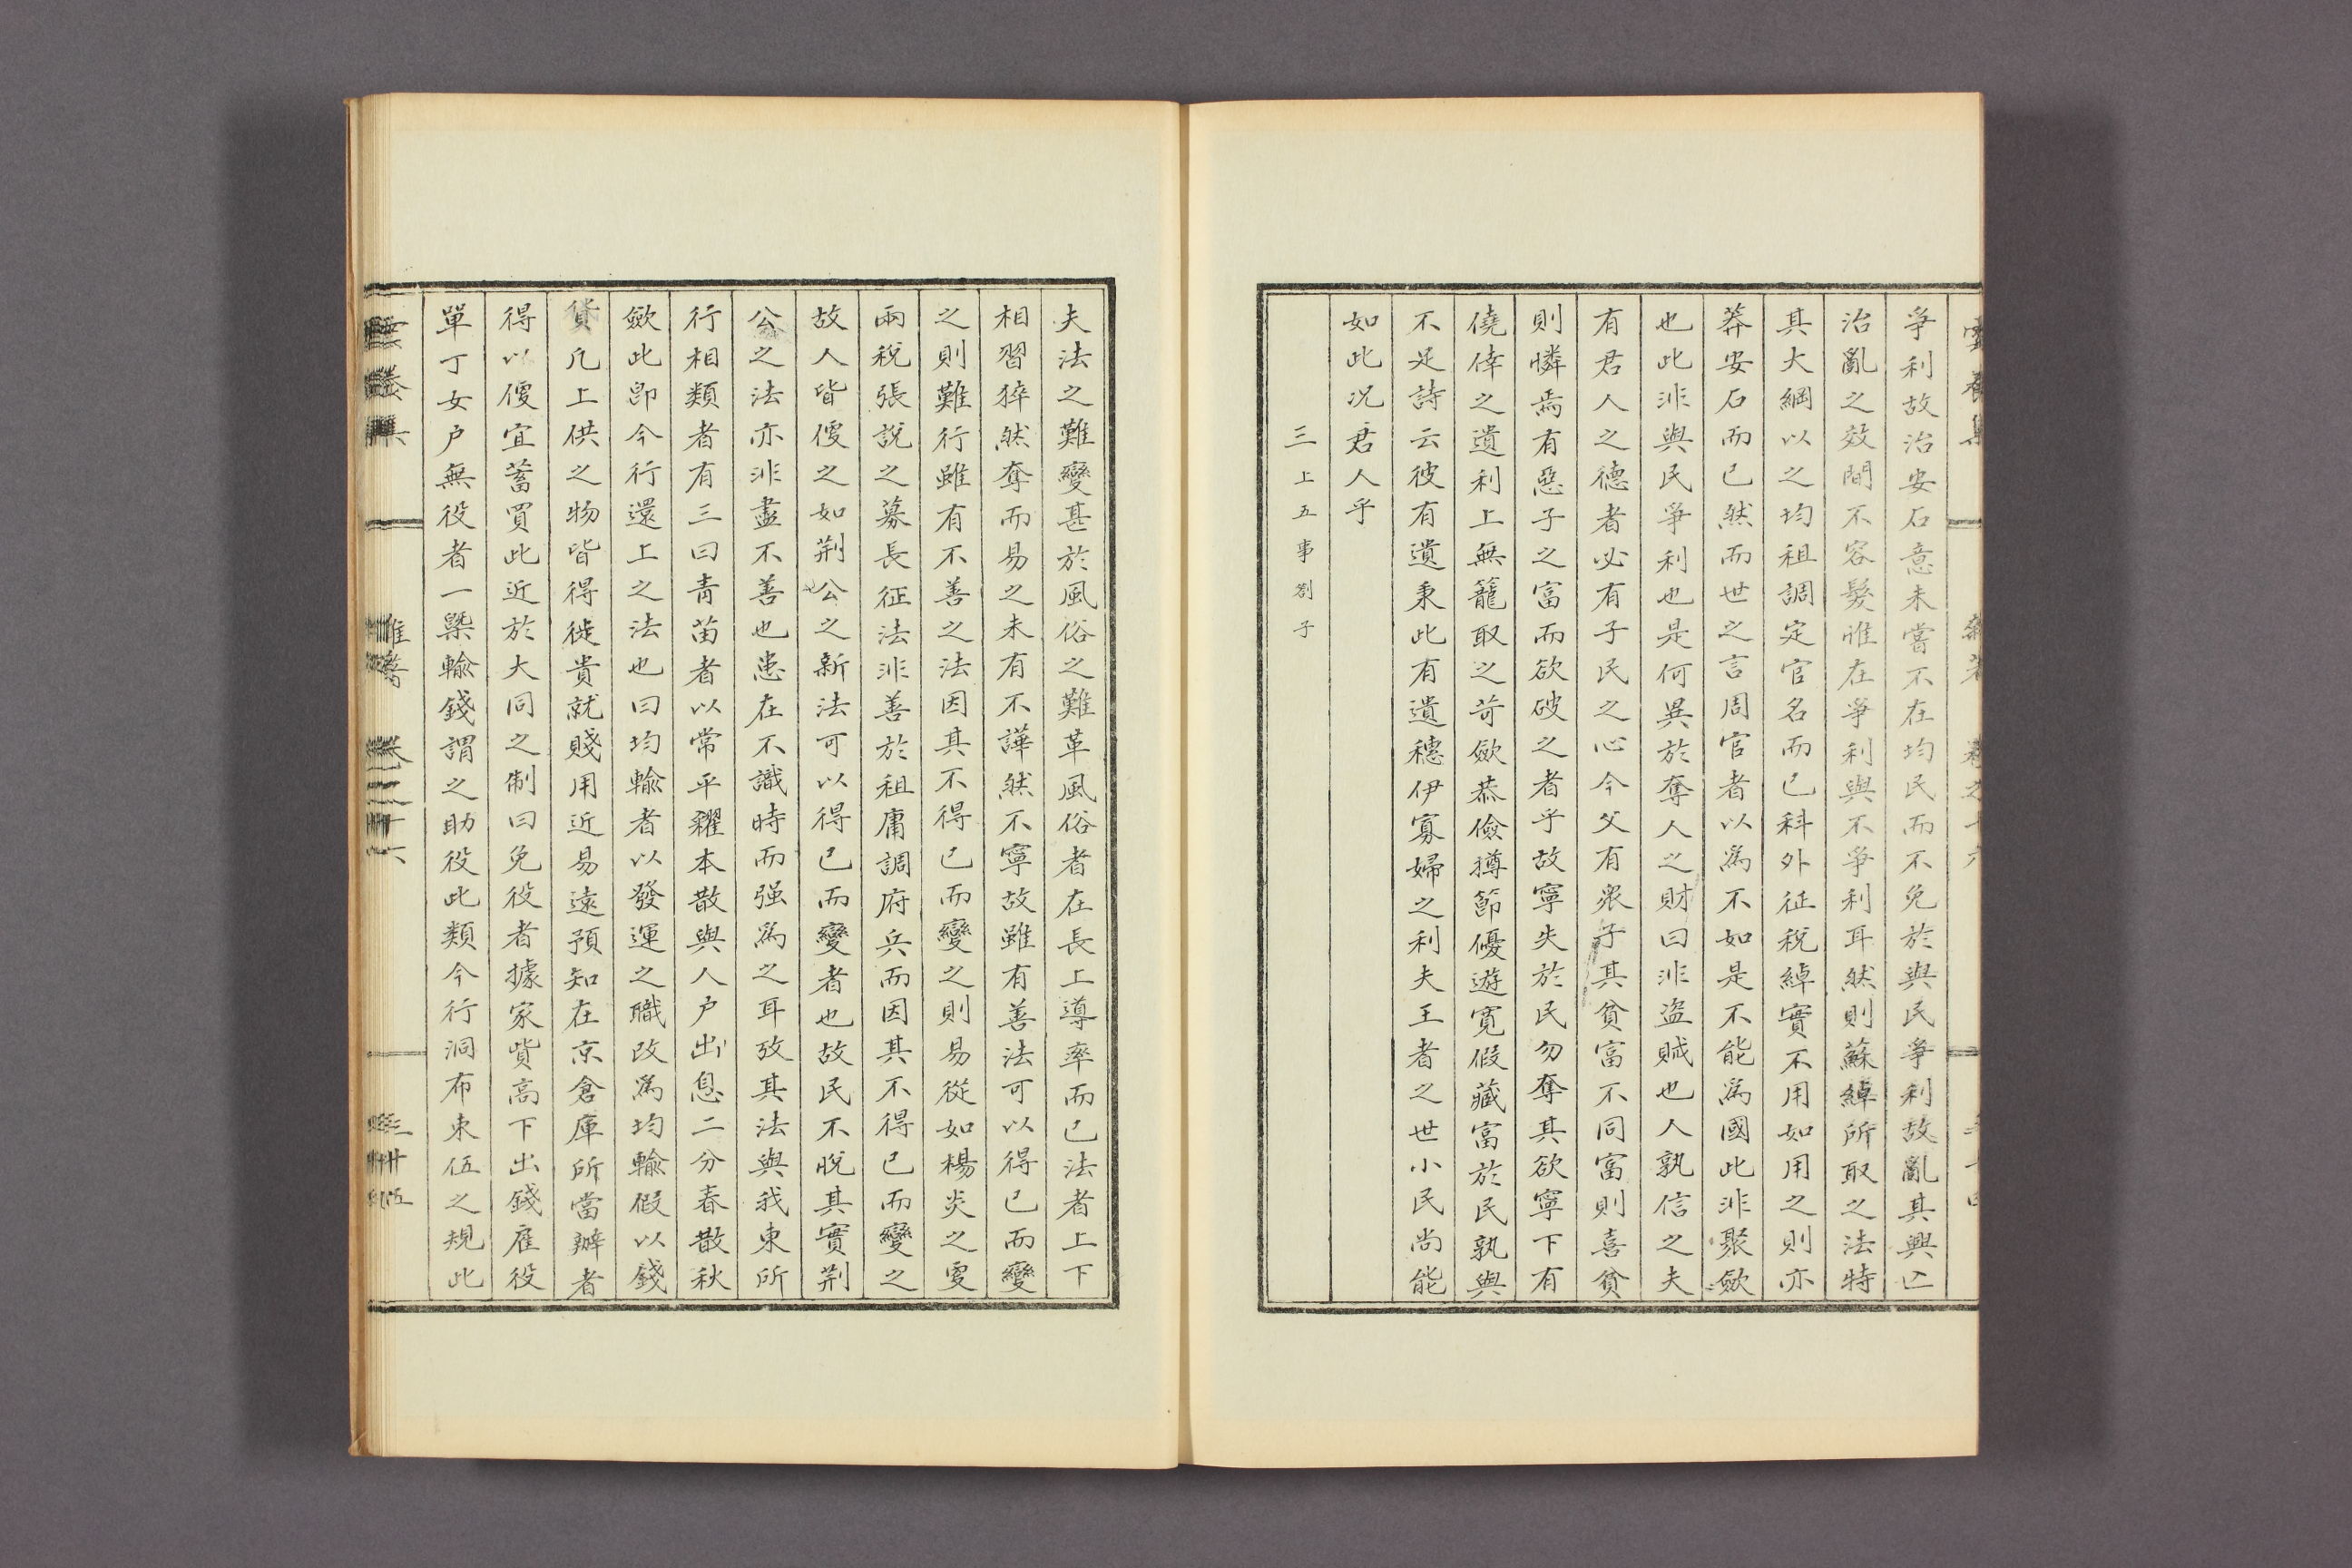 爭利故治安石意未嘗不在均民而不免於與民爭利故亂其興亡
治亂之效間不容髮惟在爭利與不爭利耳然則蘇綽所取之法特
其大綱以之均租調定官名而已科外征稅綽實不用如用之則亦
莽安石而已然而世之言周官者以爲不如是不能爲國此非聚斂
也此非與民爭利也是何異於奪人之財曰非盜賊也人孰信之夫
有君人之德者必有子民之心今父有衆子其貧富不同富則喜貧
則憐焉有惡子之富而欲破之者乎故寧失於民勿奪其欲寧下有
僥倖之遺利上無籠取之苛斂恭儉撙節優遊寬假藏富於民孰與
不足詩云彼有遺秉此有遺穗伊寡婦之利夫王者之世小民尚能
如此况君人乎
三上五事劄子
夫法之難變甚於風俗之難革風俗者在長上導率而已法者上下
相習猝然奪而易之未有不譁然不寧故雖有善法可以得已而變
之則難行雖有不善之法因其不得已而變之則易從如楊炎之變
兩稅張說之募長征法非善於租庸調府兵而因其不得已而變之
故人皆便之如荆公之新法可以得已而變者也故民不悅其實荆
公之法亦非盡不善也患在不識時而强爲之耳攷其法與我東所
行相類者有三曰靑苗者以常平糴本散與人户出息二分春散秋
斂此卽今行還上之法也曰均輸者以發運之職改爲均輸假以錢
貨凡上供之物皆得徙貴就賤用近易遠預知在京倉庫所當辦者
得以便宜蓄買此近於大同之制曰免役者據家貲高下出錢雇役
單丁女户無役者一槩輸錢謂之助役此類今行洞布束伍之規此